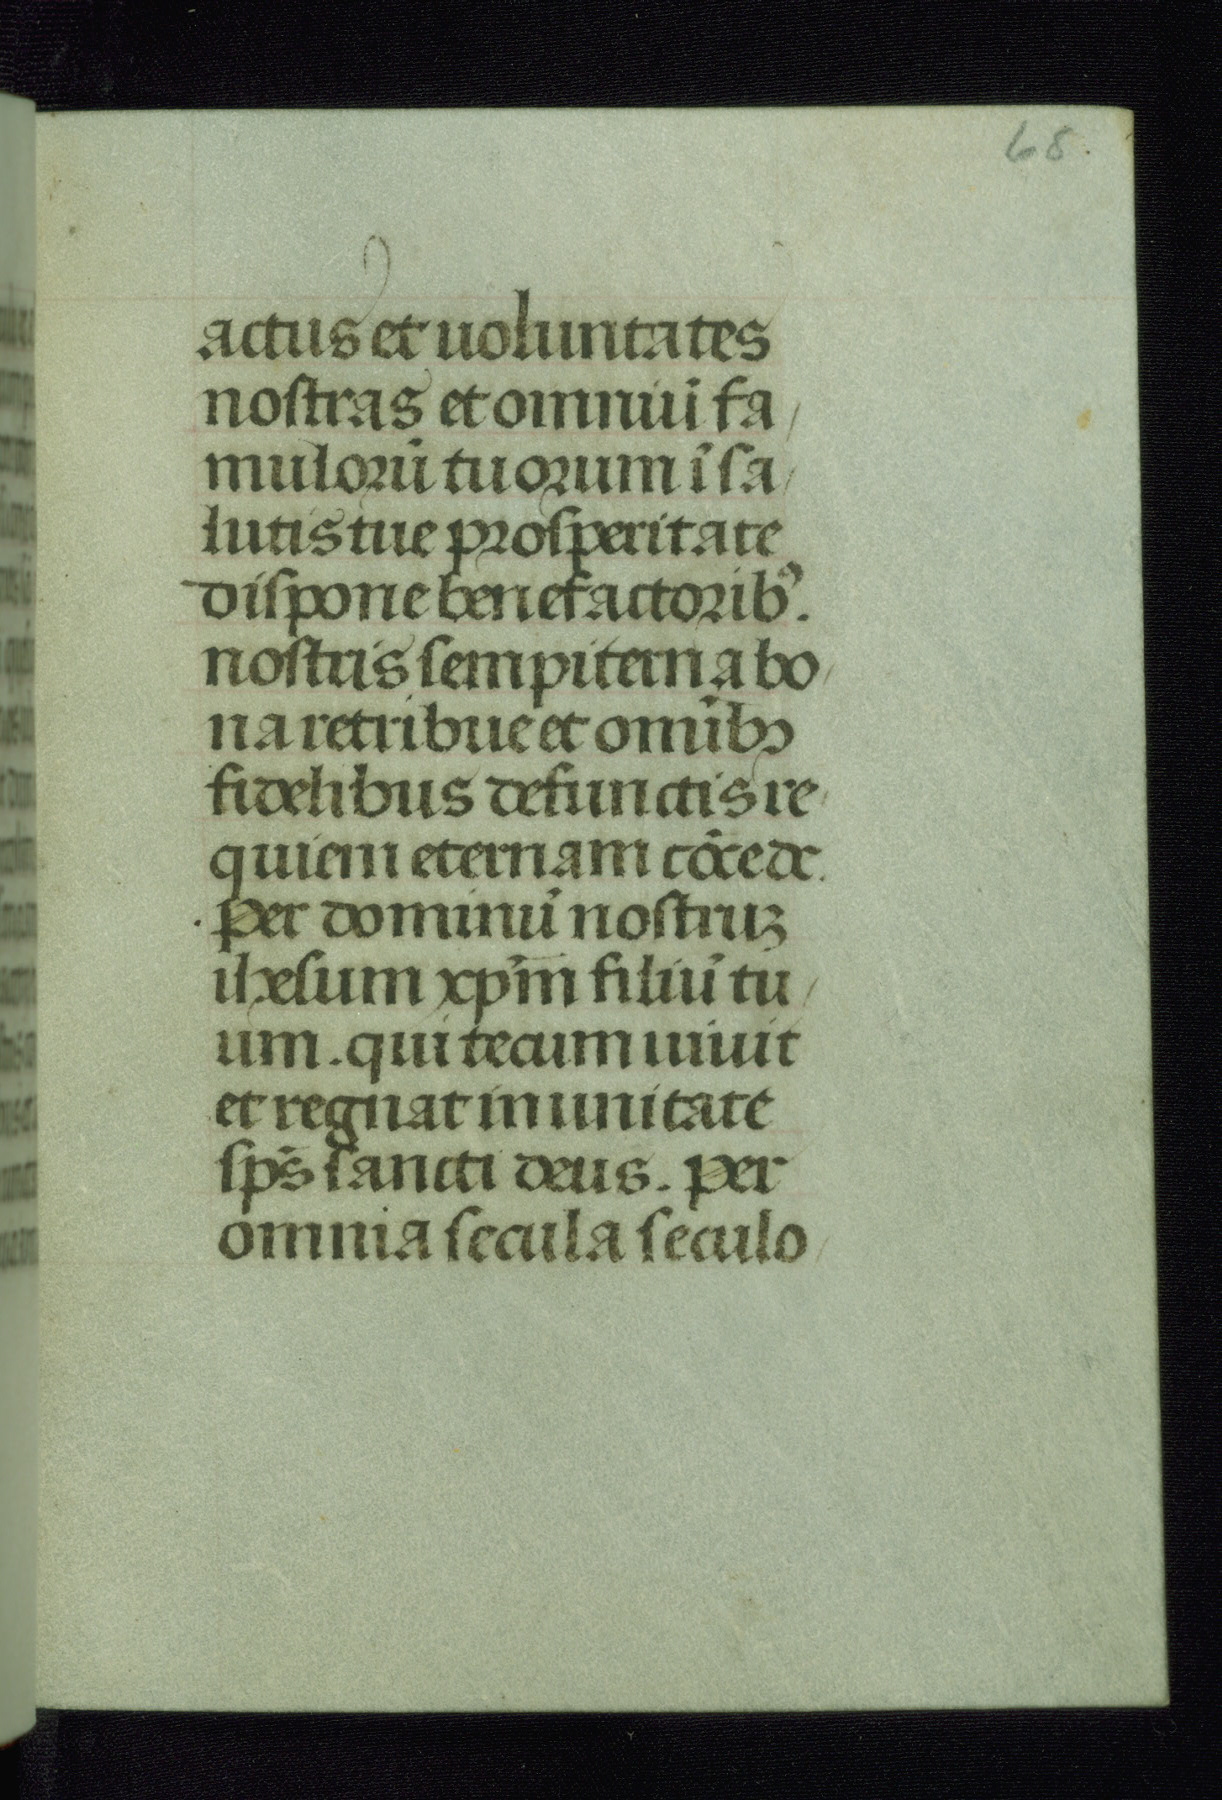 68.
actus et uoluntates
nostras et omniū fa
mulorū tuorum ī sa
lutis tue prosperitate
dispone benefactorib⁹.
nostris sempiterna bo
na retribue et omībꝫ
fidelibus defunctis re
quiem eternam cōcede.
per dominū nostruꝫ
ihesum xp̄m filiū tu
um. qui tecum uiuit
et regnat in unitate
sp̄s sancti deus. per
omnia secula seculo